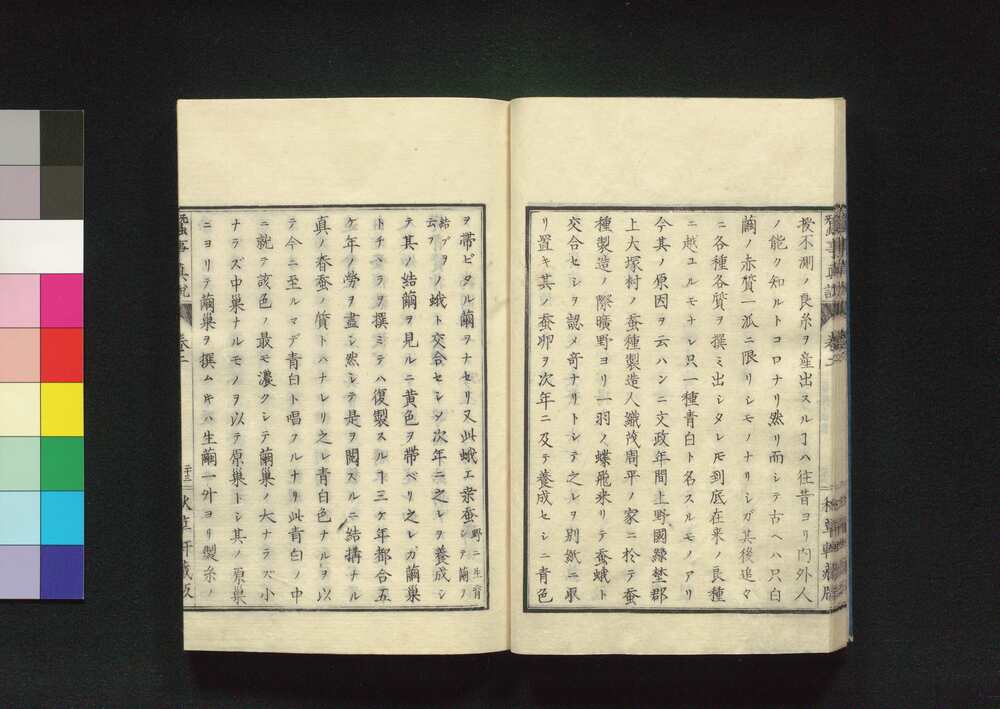 投不測ノ良糸ヲ産出スルヿハ往昔ヨリ内外人
ノ能ク知ルトコロナリ然リ而シテ古ヘハ只白
繭ノ赤質一派ニ限リシモノナリシガ其後追々
ニ各種各質ヲ撰ミ出シタレ𪜈到底在来ノ良種
ニ越ユルモナシ只一種青白ト名スルモノアリ
今其ノ原因ヲ云ハンニ文政年間上野國緑埜郡
上大塚村ノ蚕種製造人織茂周平ノ家ニ於テ蚕
種製造ノ際曠野ヨリ一羽ノ蝶飛来リテ蚕蛾ト
交合セシヲ認メ奇ナリトシテ之レヲ別紙ニ取
リ置キ其ノ蚕卵ヲ次年ニ及テ養成セシニ青色
ヲ帯ビタル繭ヲナセリ又此蛾エ桒蚕野ニ生育シテ繭ノ
結ブヲ云フノ蛾ト交合セシメ次年ニ之レヲ養成シ
テ其ノ結繭ヲ見ルニ黄色ヲ帯ベリ之レガ繭巣
トチハラヲ撰ミテハ復製スルヿ三ケ年都合五
ケ年ノ労ヲ盡シ然シテ是ヲ閲スルニ結構ナル
真ノ春蚕ノ質トハナレリ之レ青白色ナルヲ以
テ今ニ至ルマデ青白ト唱フルナリ此青白ノ中
ニ就テ該色ノ最モ濃クシテ繭巣ノ大ナラズ小
ナラズ中巣ナルモノヲ以テ原巣トシ其ノ原巣
ニヨリテ繭巣ヲ撰ムキハ生繭一升ヨリ製糸ノ
蚕事真説 巻二 二十三 秋草軒蔵版